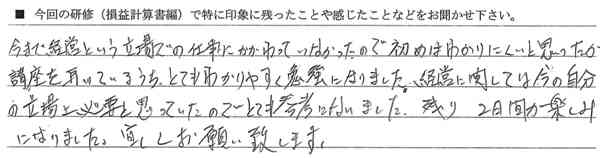 ■ 今回の研修（損益計算書編）で特に印象に残ったことや感じたことなどをお聞かせ下さい。
今まで経営という立場での仕事にかかわっていなかったので初めはわかりにくいと思ったが
講座を聞いているうち、とてもわかりやすく勉強になりました。経営に関しては今の自分
の立場上必要と思っていたのでとても参考になりました。残り 2日間が楽しみ
になりました。宜しくお願い致します。